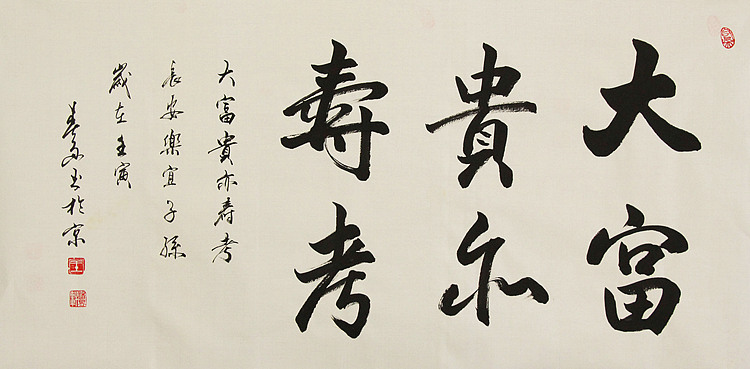 大富
貴亦
壽考
大富貴亦壽考
長安樂宜子孫
歲在壬寅
书於京